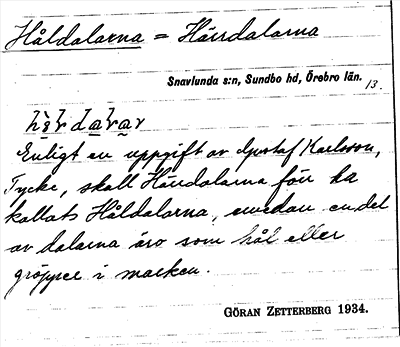 Håldalarna = Härdalarna
Snavlunda s:n, Sundbo hd, Örebro län.
13.
Enligt en uppgift av Gustaf Karlsson,
Tycke, skall Härdalarna förr ha
kallats Håldalarna, emedan en del
av dalarna äro som hål eller
gropar i marken.
GÖRAN ZETTERBERG 1934.